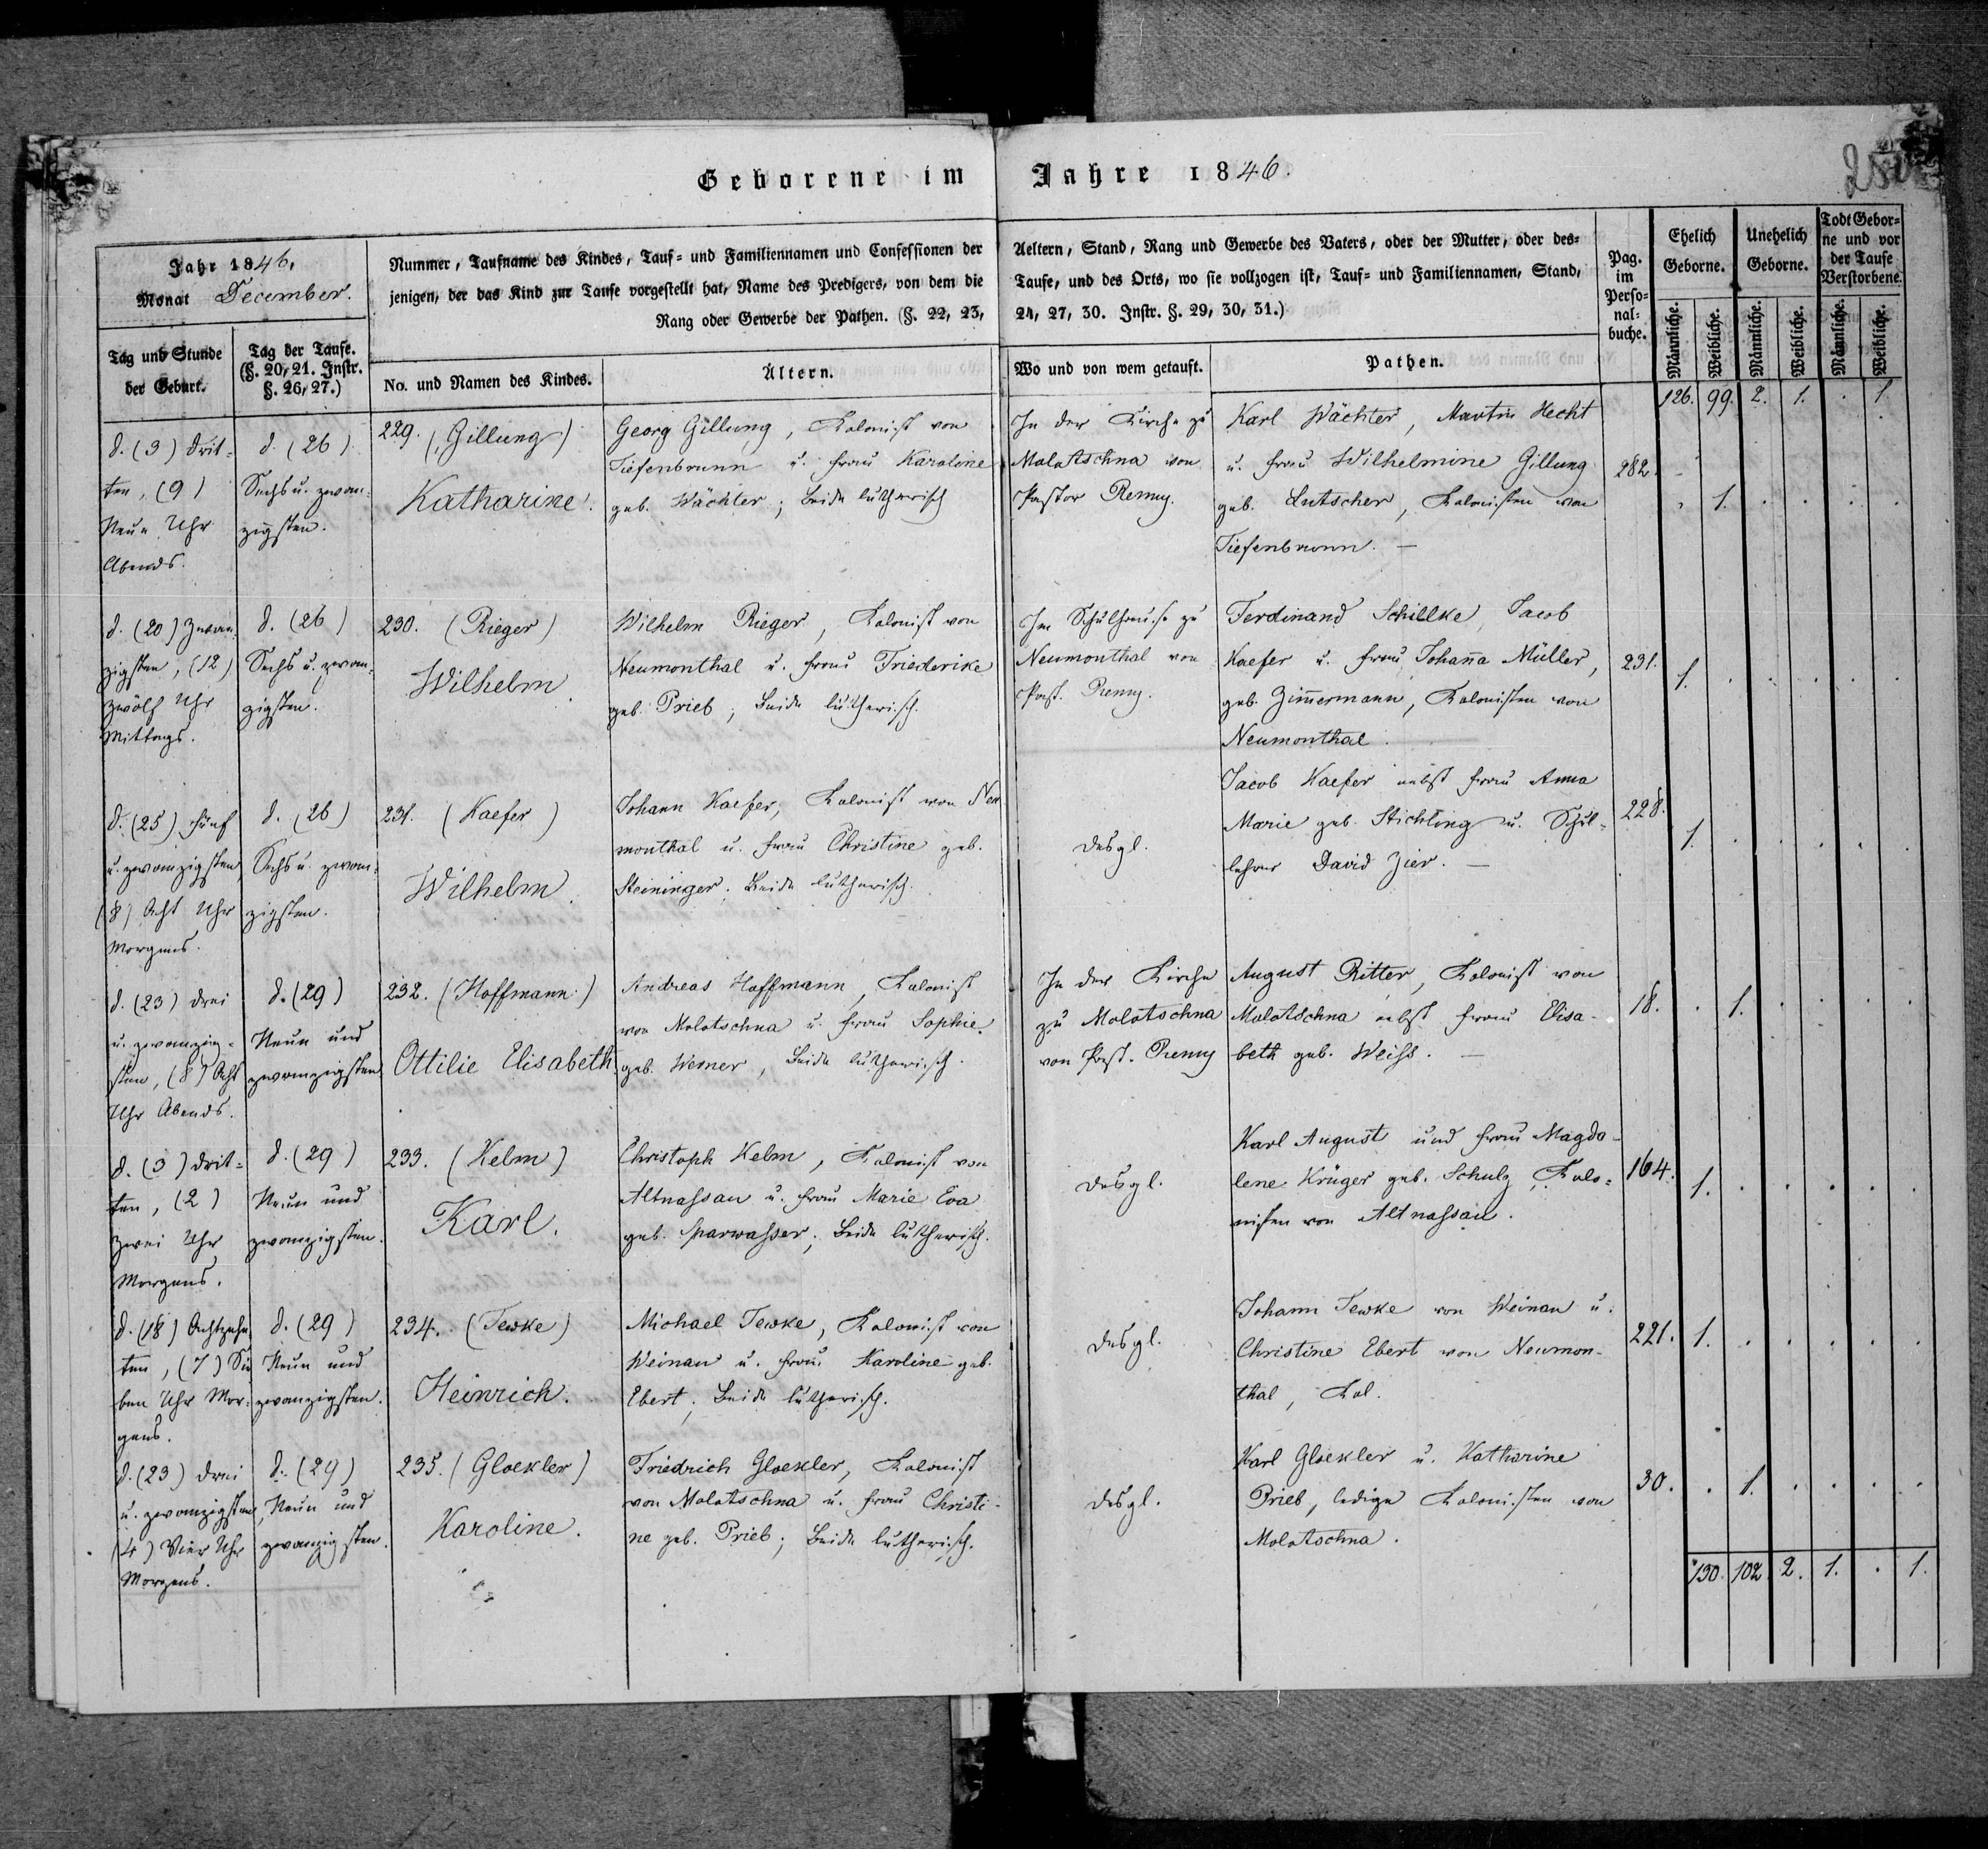 Geborene im Jahre 1846.
Jahr 1846,
Monat December.
Tag und Stunde
der Geburt.
Tag der Taufe.
(§. 20, 21. Instr.
§. 26, 27.)
Nummer, Taufname des Kindes, Tauf- und Familiennamen und Confessionen der
jenigen, der das Kind zur Taufe vorgestellt hat, Name des Predigers, von dem die
Rang oder Gewerbe der Pathen. (§. 22, 23,
No. und Namen des Kindes.
Ältern.
Aeltern, Stand, Rang und Gewerbe des Vaters, oder der Mutter, oder des-
Taufe, und des Orts, wo sie vollzogen ist, Tauf- und Familiennamen, Stand,
24, 27, 30. Instr. §. 29, 30, 31.)
Wo und von wem getauft.
Pathen.
Pag.
im
Perso-
nal-
buche.
Ehelich
Geborne.
Unehelich
Geborne.
Todt Gebor-
ne und vor
der Taufe
Verstorbene.
Männliche.
Weibliche.
Männliche.
Weibliche.
Männliche.
Weibliche.
126. 99. 2. 1. . 1.
d. (3) drit-
ten, (9)
Neun Uhr
Abends.
d. (26)
Sechs u. zwan-
zigsten.
229. (Gillung)
Katharine.
Georg Gillung, Kolonist von
Tiefenbrunn u. Frau Karoline
geb. Wächter; beide lutherisch
In der Kirche zu
Molotschna von
Pastor Remy.
Karl Wächter, Martin Hecht
u. Frau Wilhelmine Gillung
geb. Lutscher, Kolonisten von
Tiefenbrunn. —
282.
. 1. . . . .
d. (20) Zwan-
zigsten, (12)
zwölf Uhr
Mittags.
d. (26)
Sechs u. zwan-
zigsten.
230. (Rieger)
Wilhelm
Wilhelm Rieger, Kolonist von
Neumonthal u. Frau Friederike
geb. Prieb; beide lutherisch.
Im Schulhause zu
Neumonthal von
Past. Remy.
Ferdinand Schillke, Jacob
Kaefer u. Frau Johana Müller,
geb. Zimermann, Kolonisten von
Neumonthal.
231.
1. . . . . .
d. (25) fünf
u. zwanzigsten
(8) Acht Uhr
Morgens.
d. (26)
Sechs u. zwan-
zigsten.
231. (Kaefer)
Wilhelm.
Johann Kaefer, Kolonist von Neu
monthal u. Frau Christine geb.
Steininger; beide lutherisch.
desgl.
Jacob Kaefer nebst Frau Anna
Marie geb. Stichling u. Schul-
lehrer David Zier. —
228.
1. . . . . .
d. (23) drei
u. zwanzig-
sten, (8) Acht
Uhr Abends.
d. (29)
Neun und
zwanzigsten
232. (Hoffmann.)
Ottilie Elisabeth
Andreas Hoffmann, Kolonist
von Molotschna u. Frau Sophie
geb. Werner, beide lutherisch.
In der Kirche
zu Molotschna
von Past. Remy
August Ritter, Kolonist von
Molotschna nebst Frau Elisa-
beth geb. Weiss. —
18.
. 1. . . . .
d. (3) drit-
ten, (2)
zwei Uhr
Morgens.
d. (29)
Neun und
zwanzigsten.
233. (Helm)
Karl.
Christoph Helm, Kolonist von
Altnassau u. Frau Marie Eva
geb. Sparwasser; beide lutherisch.
desgl.
Karl August und Frau Magda-
lene Krüger geb. Schulz, Kolo-
nisten von Altnassau.
164.
1. . . . . .
d. (18) Achtzehn
ten, (7) Sie
ben Uhr Mor-
gens.
d. (29)
Neun und
zwanzigsten.
234. (Tewke)
Heinrich.
Michael Tewke, Kolonist von
Weinau u. Frau Karoline geb.
Ebert; beide lutherisch.
desgl.
Johann Tewke von Weinau u.
Christine Ebert von Neumon-
thal, Kol.
221.
1. . . . . .
d. (23) drei
u. zwanzigsten
(4) Vier Uhr
Morgens.
d. (29)
Neun und
zwanzigsten.
235. (Gloekler)
Karoline.
Friedrich Gloekler, Kolonist
von Molotschna u. Frau Christi-
ne geb. Prieb; beide lutherisch.
desgl.
Karl Gloekler u. Katharine
Prieb, ledige Kolonisten von
Molotschna.
30.
. 1. . . . .
130. 102. 2. 1. . 1.